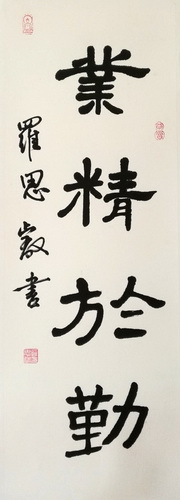 業精於勤
羅思嚴書